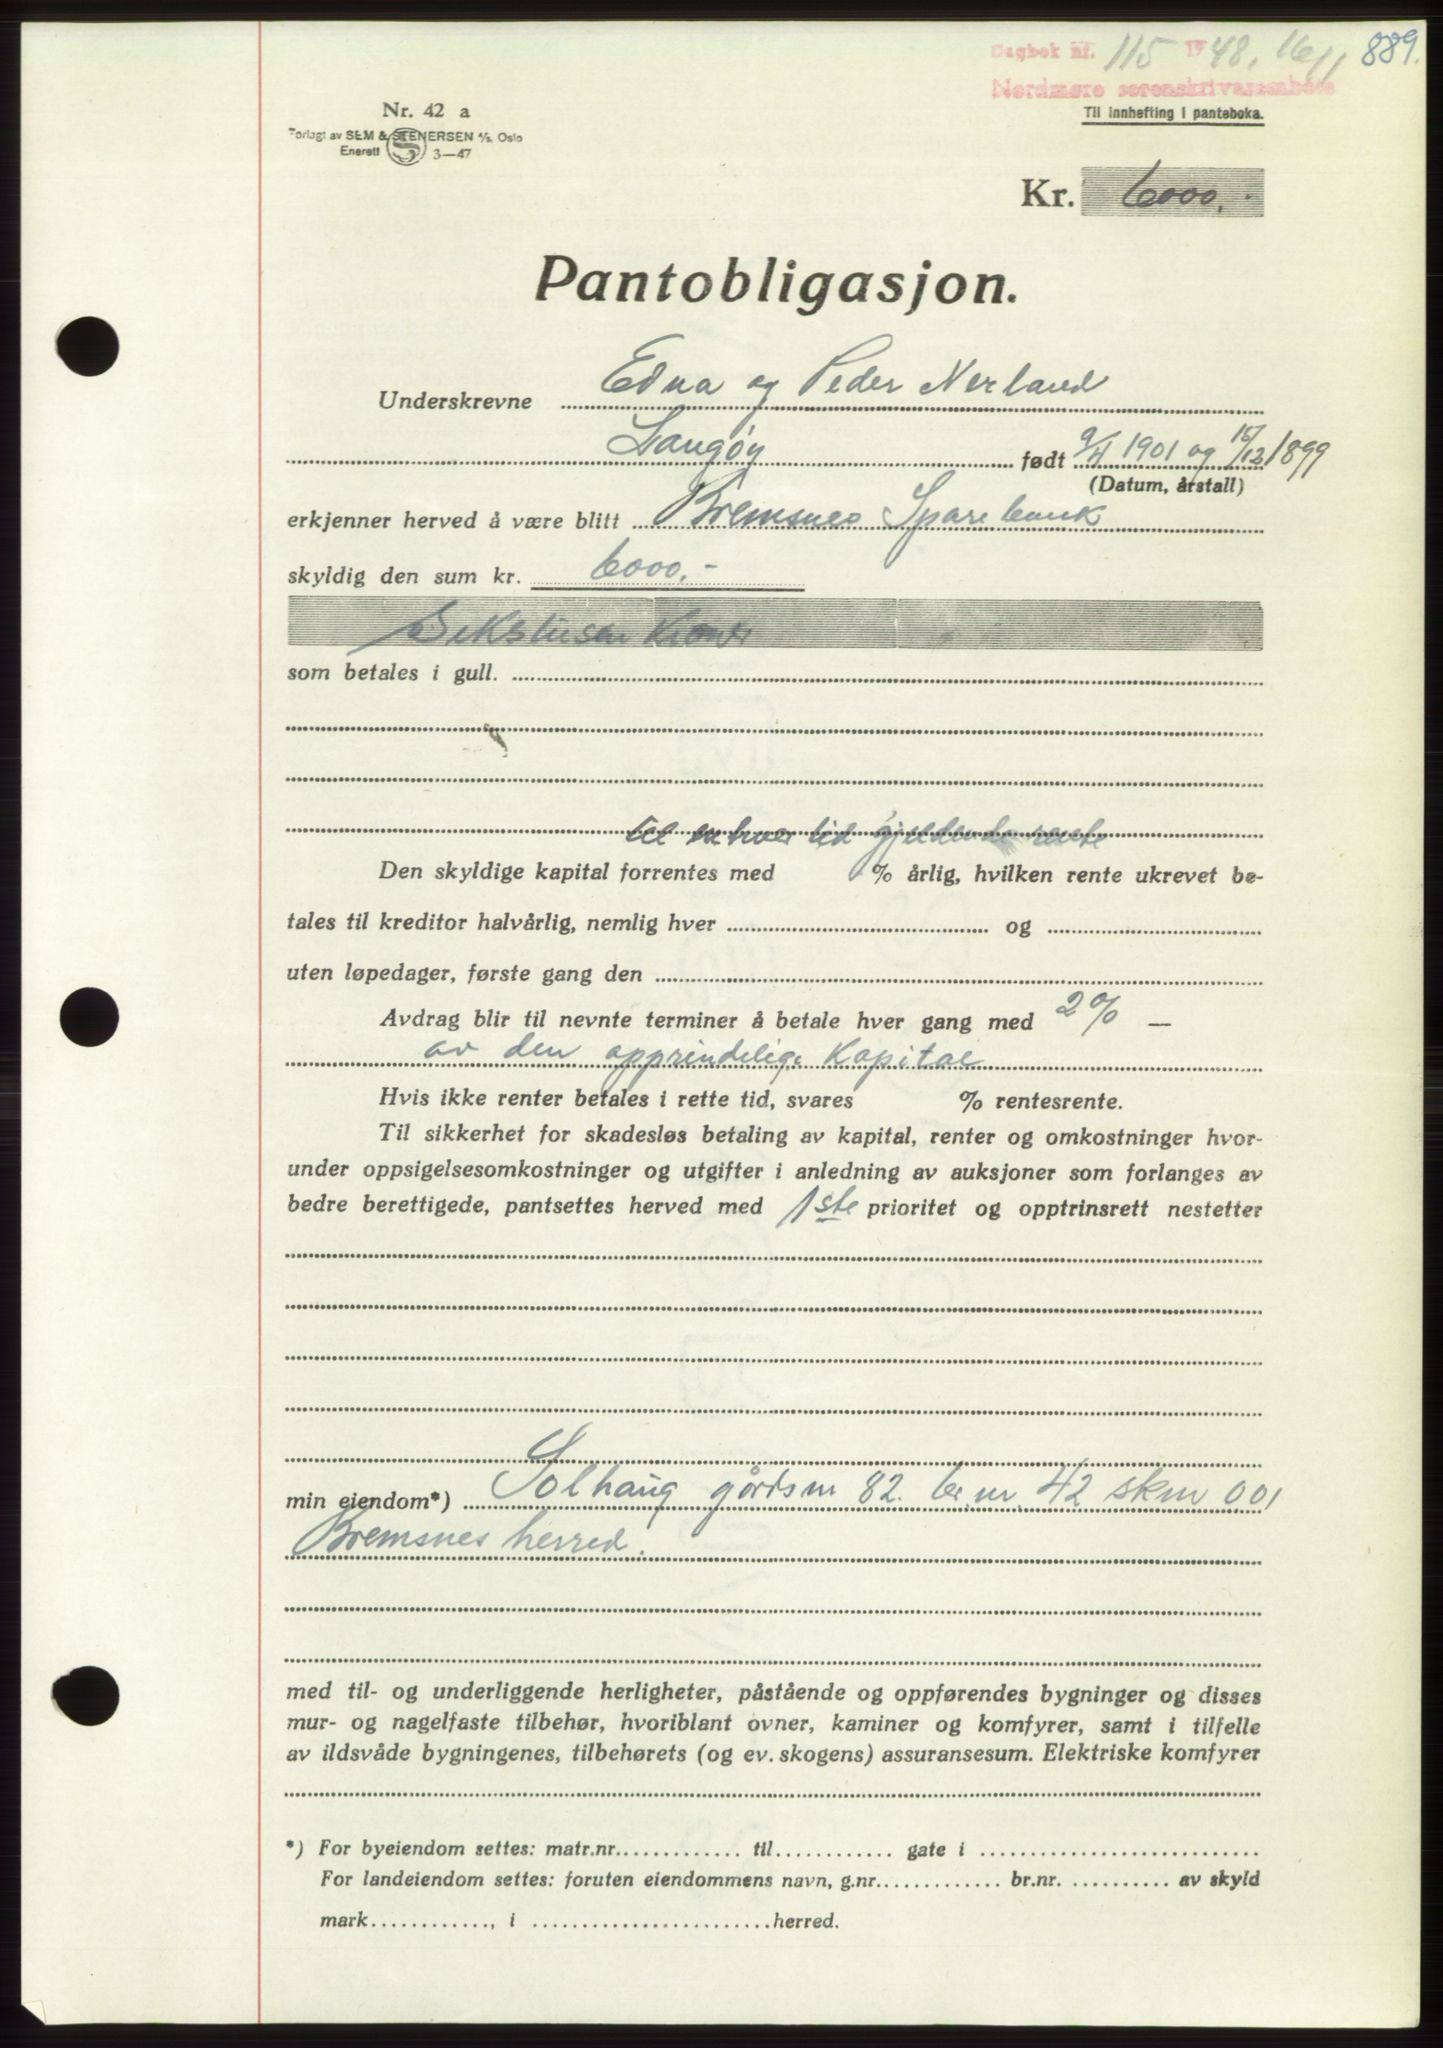 Dagbok nr. 115 1948, 16/1 889.
Nordmøre sorenskriverembete
Til innhefting i panteboka.
Nr. 42 a
Forlagt av SEM & STENERSEN A/S, Oslo
Enerett 3—47
Kr. 6000.-
Pantobligasjon.
Underskrevne Edna og Peder Nerland
Langøy født 9/4 1901 og 15/12 1899
(Datum, årstall)
erkjenner herved å være blitt Bremsnes Sparebank
skyldig den sum kr. 6000.-
Sekstusen Kroner
som betales i gull.
til enhver tid gjeldende rente
Den skyldige kapital forrentes med % årlig, hvilken rente ukrevet be-
tales til kreditor halvårlig, nemlig hver og
uten løpedager, første gang den
Avdrag blir til nevnte terminer å betale hver gang med 2% —
av den opprindelige Kapital
Hvis ikke renter betales i rette tid, svares % rentesrente.
Til sikkerhet for skadesløs betaling av kapital, renter og omkostninger hvor-
under oppsigelsesomkostninger og utgifter i anledning av auksjoner som forlanges av
bedre berettigede, pantsettes herved med 1ste prioritet og opptrinsrett nestetter
min eiendom*) Solhaug gårdsnr 82. br.nr. 42 skm 001
Bremsnes herred.
med til- og underliggende herligheter, påstående og oppførendes bygninger og disses
mur- og nagelfaste tilbehør, hvoriblant ovner, kaminer og komfyrer, samt i tilfelle
av ildsvåde bygningenes, tilbehørets (og ev. skogens) assuransesum. Elektriske komfyrer
*) For byeiendom settes: matr.nr............. til............ gate i ............................
For landeiendom settes: foruten eiendommens navn, g.nr............. br.nr. .......... av skyld
mark............, i ........................herred.